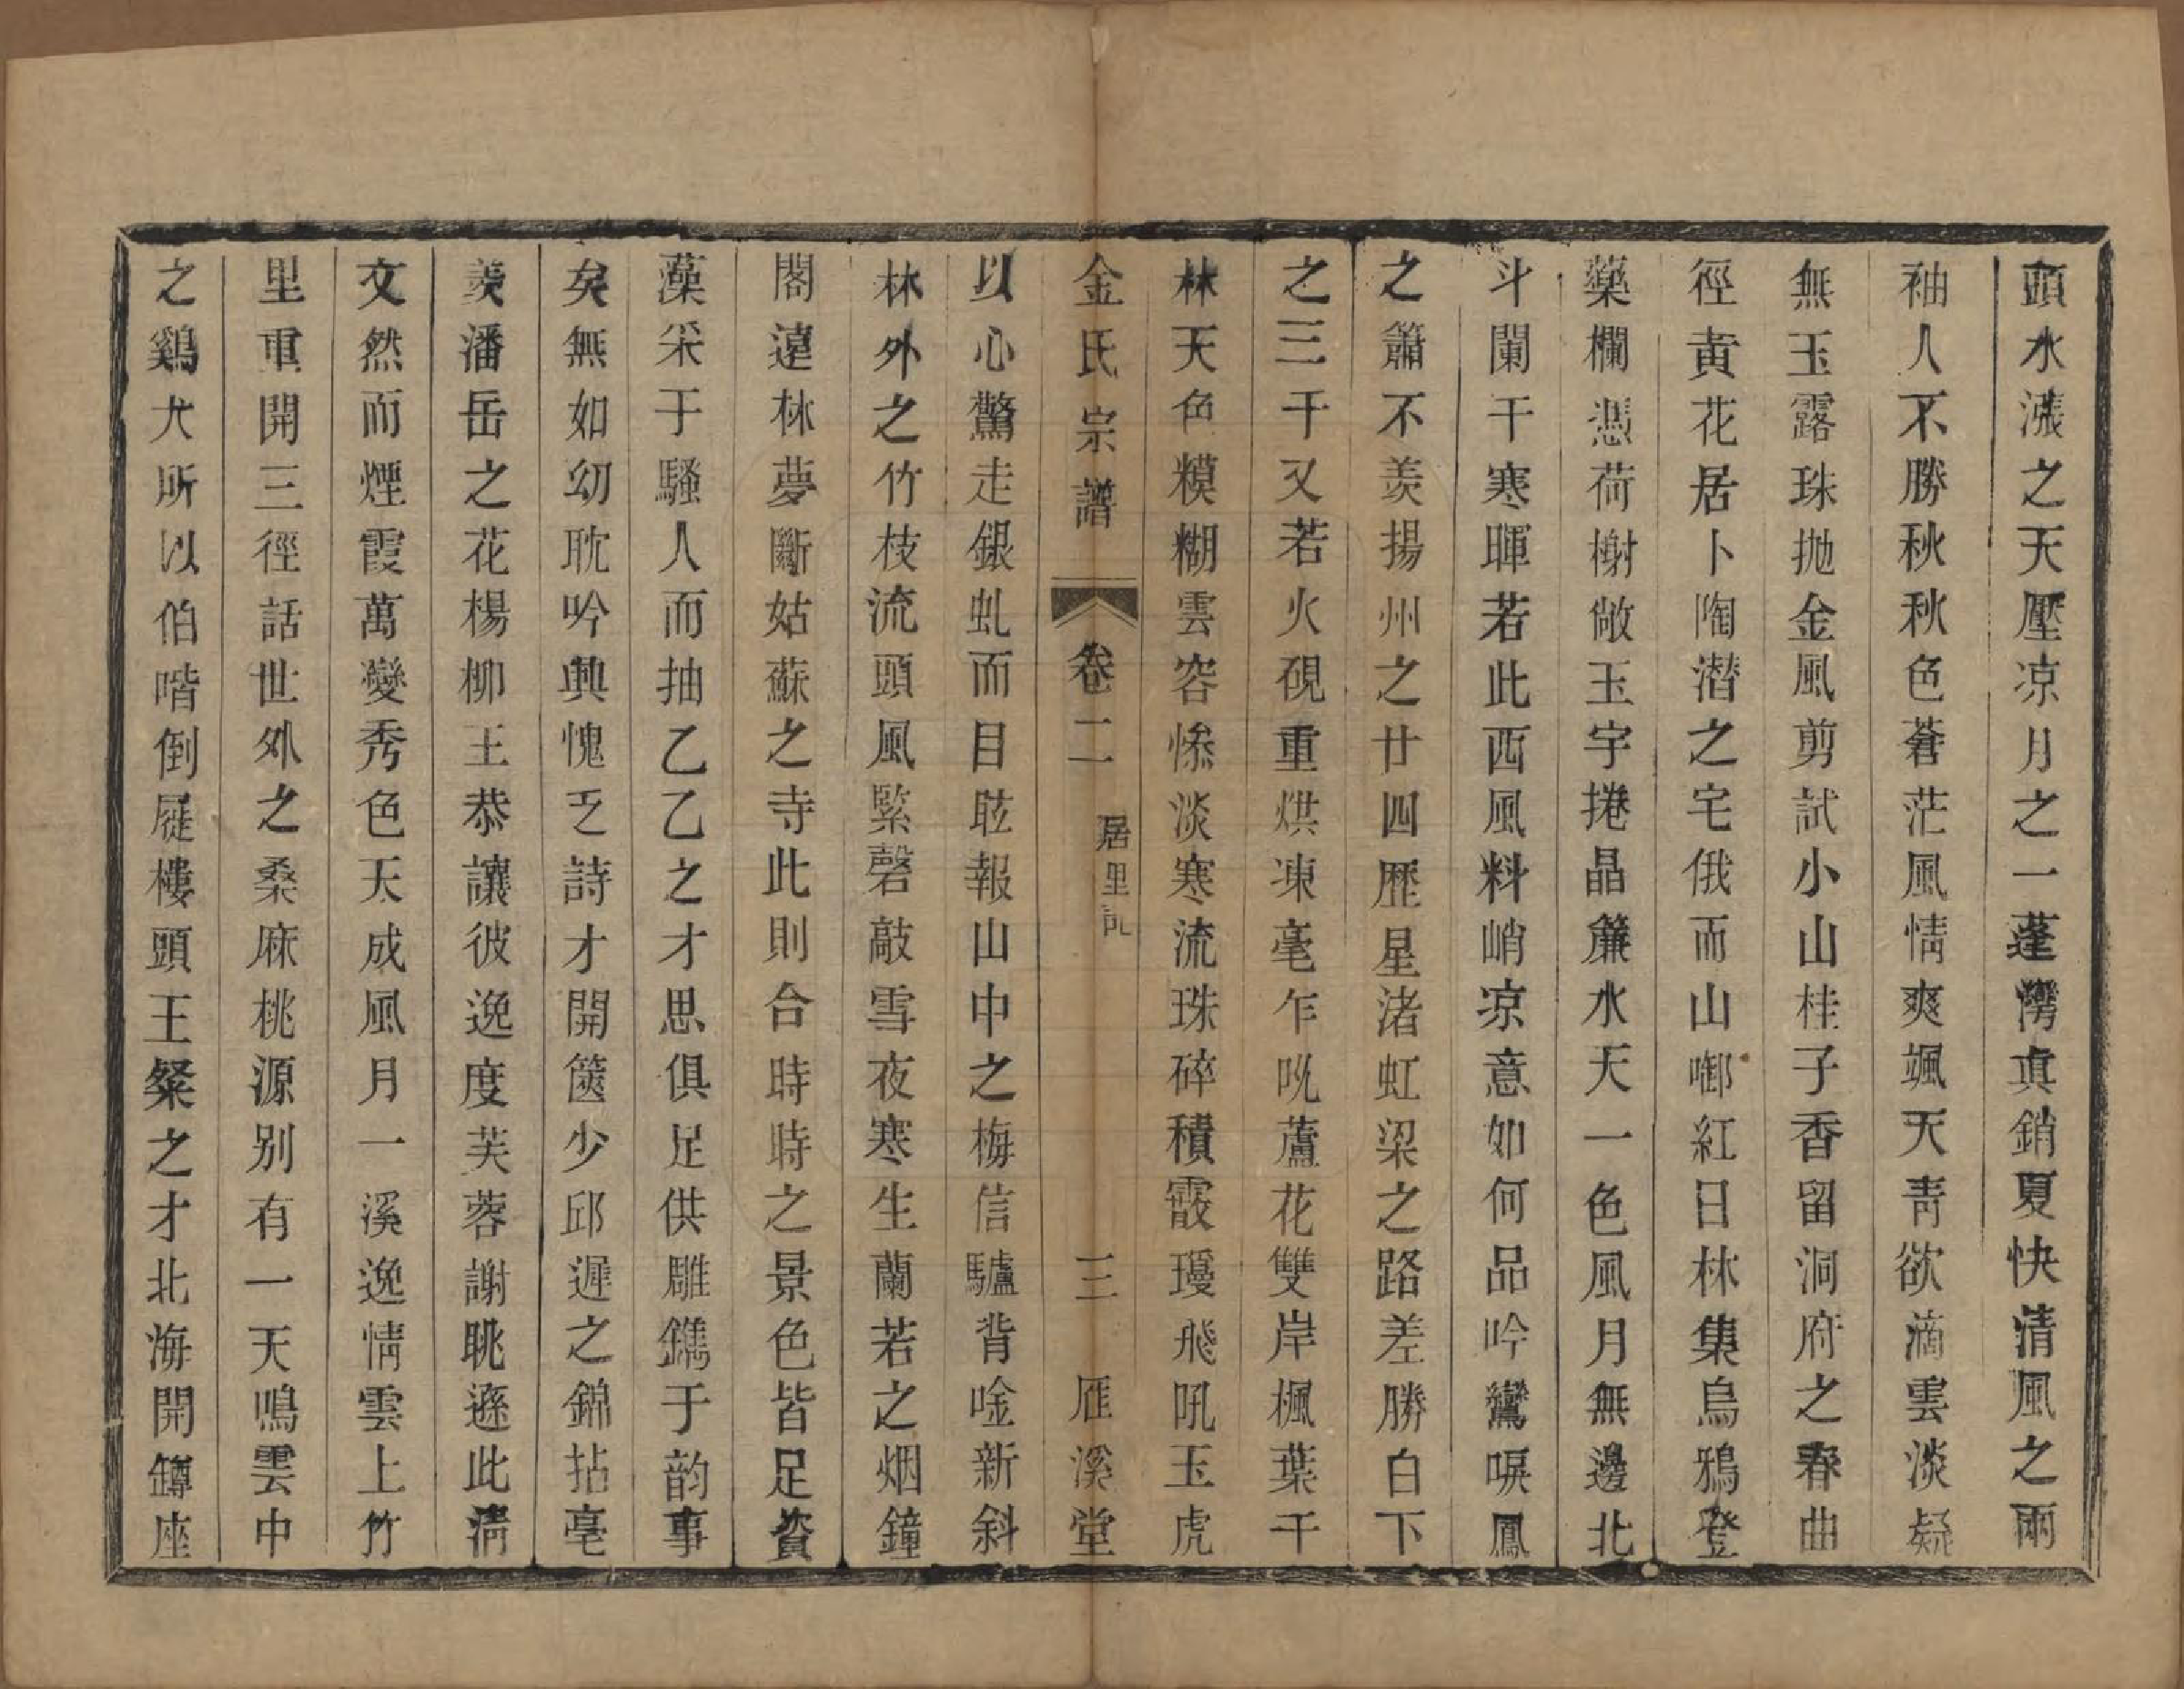 頭水漲之天壓凉月之一蓬灣真銷夏快清風之兩
袖人不勝秋秋色蒼茫風情爽颯天青欲滴雲淡疑
無玉露珠拋金風剪試小山桂子香留洞府之春曲
徑黄花居卜陶潛之宅俄而山啣紅日林集烏鴉登
藥欄憑荷榭敞玉宇捲晶簾水天一色風月無邊北
斗闌干寒暉若此西風料峭凉意如何品吟鸞唳鳳
之簫不羨揚州之廿四歷星渚虹梁之路差勝白下
之三千又若火硯重烘凍毫乍吮蘆花雙岸楓葉千
林天色糢糊雲容慘淡寒流珠碎積霰璦飛吼玉虎
金氏宗譜 卷二 居里記 三 雁溪堂
以心驚走銀虬而目眩報山中之梅信驢背唫新斜
林外之竹枝流頭風緊磬敲雪夜寒生蘭若之烟鐘
閣遠林夢斷姑蘇之寺此則合時時之景色皆足資
藻采于騷人而抽乙乙之才思俱足供雕鐫于韵事
矣無如幼耽吟興愧乏詩才開篋少邱遲之錦拈毫
羨潘岳之花楊柳王恭讓彼逸度芙蓉謝眺遜此清
文然而煙霞萬變秀色天成風月一溪逸情雲上竹
里重開三徑話世外之桑麻桃源别有一天鳴雲中
之鷄犬所以伯喈倒屣樓頭王粲之才北海開罇座